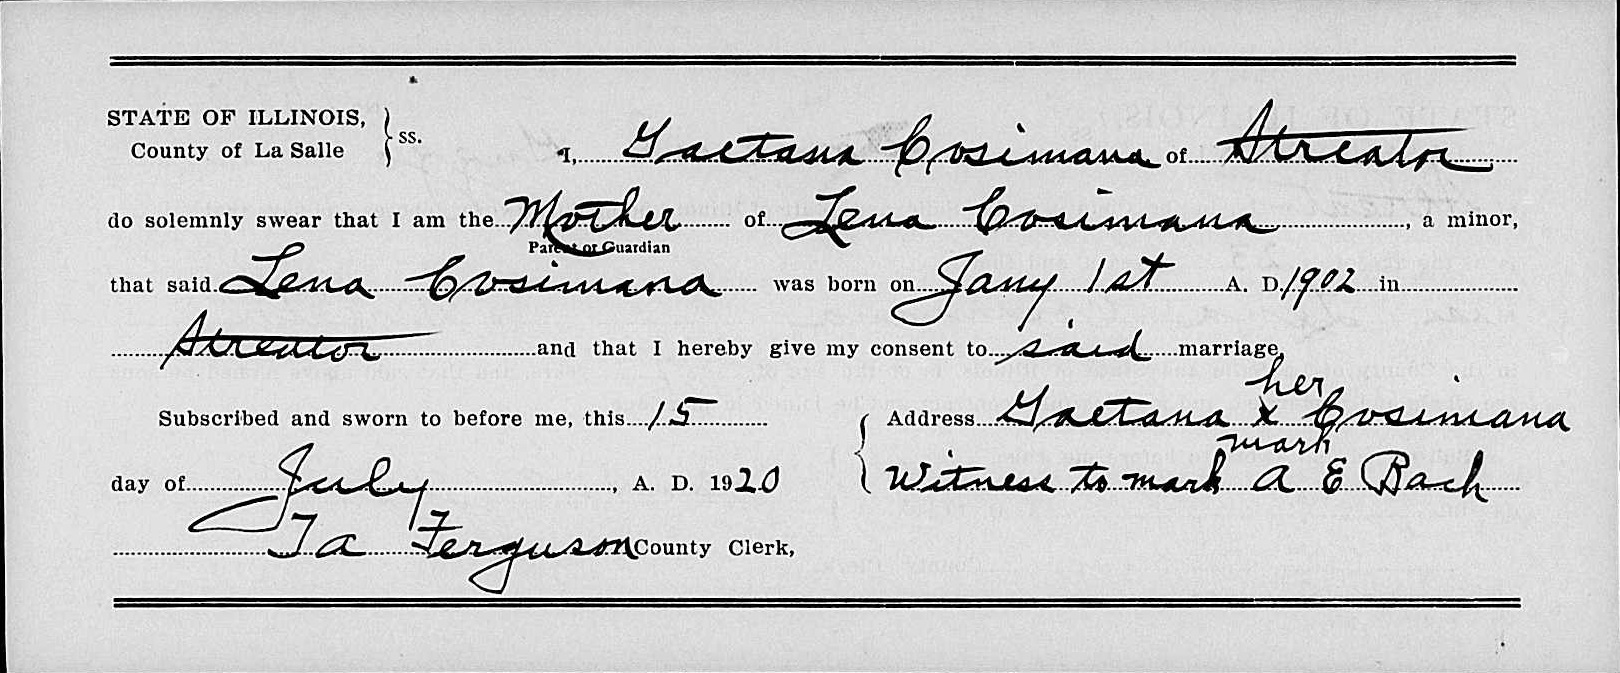 STATE OF ILLINOIS,
County of La Salle } ss. I, Gaetana Cosimana of Streator
do solemnly swear that I am the Mother of Lena Cosimana, a minor,
Parent or Guardian
that said Lena Cosimana was born on Jany 1st A. D. 1902 in
Streator and that I hereby give my consent to said marriage,
her
Subscribed and sworn to before me, this 15 { Address Gaetana x Cosimana
mark
day of July, A. D. 1920 Witness to mark A E Bach
T a Ferguson County Clerk,